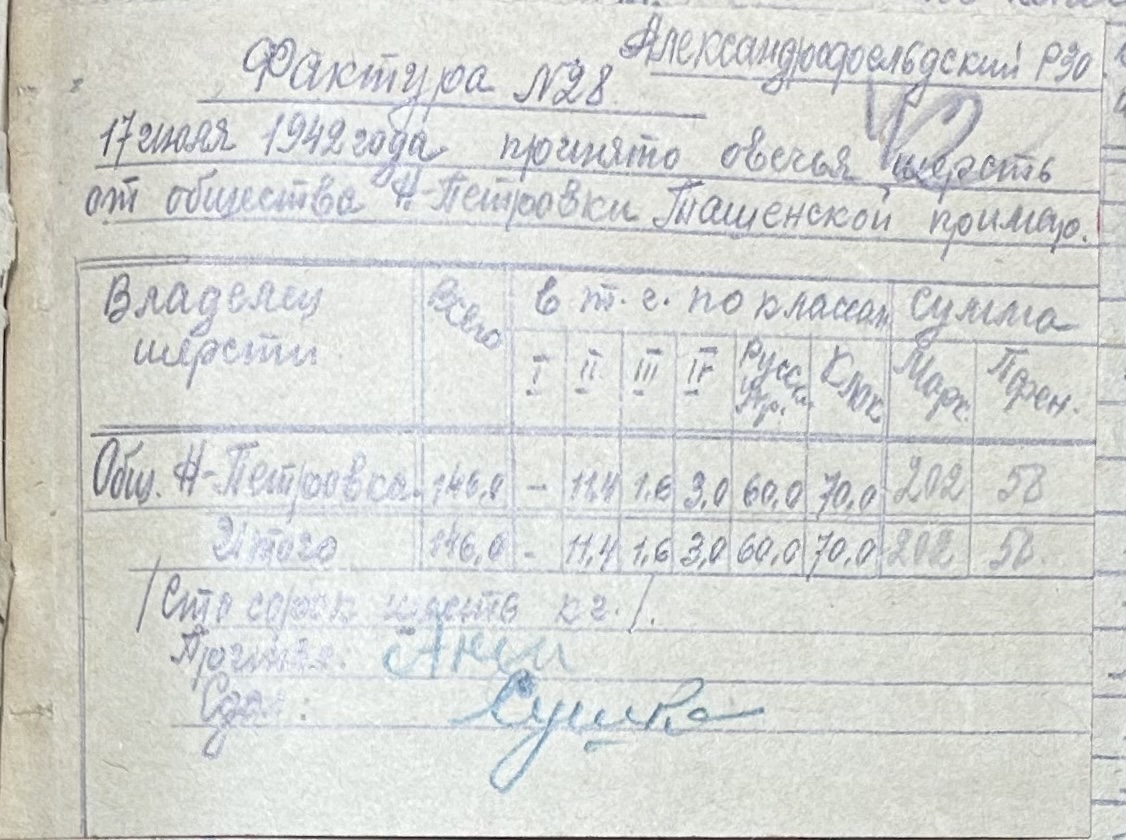 Александрофельдский РЗО
Фактура №28
17 июля 1942 года принято овечья шерсть
от общества Н-Петровки Ташенской примар.
Владелец шерсти Всего в т. ч. по классам Сумма
I II III IV Русск. Клок Марк. Пфен.
Общ. Н-Петровка 146,0 - 11,4 1,6 3,0 60,0 70,0 202 58
Итого 146,0 - 11,4 1,6 3,0 60,0 70,0 202 58
/Сто сорок шесть кг./.
Принял:
Сдал: Сушко